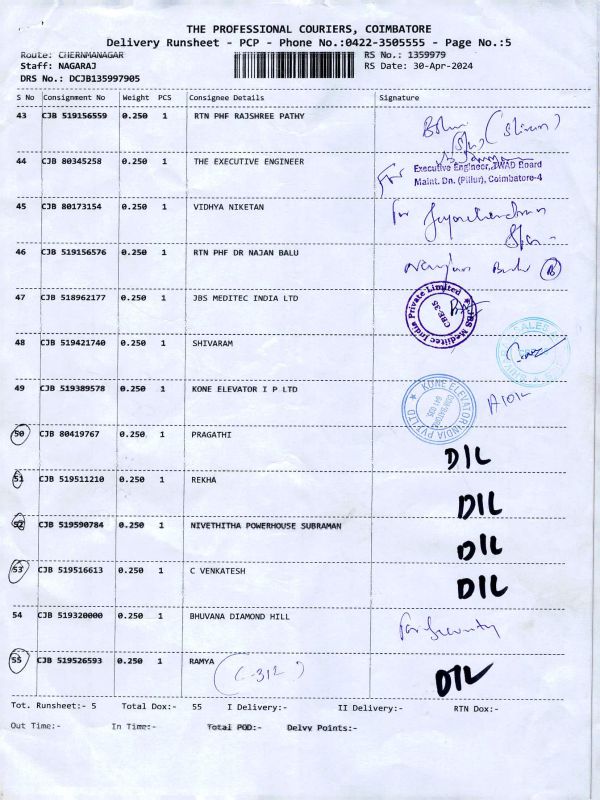 THE PROFESSIONAL COURIERS, COIMBATORE
Delivery Runsheet - PCP - Phone No.:0422-3505555 - Page No.:5
Route: CHERNMANAGAR RS No.: 1359979
Staff: NAGARAJ RS Date: 30-Apr-2024
DRS No.: DCJB135997905
S No Consignment No Weight PCS Consignee Details Signature
43 CJB 519156559 0.250 1 RTN PHF RAJSHREE PATHY
44 CJB 80345258 0.250 1 THE EXECUTIVE ENGINEER
For Executive Engineer, TWAD Board
Maint. Dn. (Pillur), Coimbatore-4
45 CJB 80173154 0.250 1 VIDHYA NIKETAN
46 CJB 519156576 0.250 1 RTN PHF DR NAJAN BALU
47 CJB 518962177 0.250 1 JBS MEDITEC INDIA LTD JBS Meditec India Private Limited CBE-35
48 CJB 519421740 0.250 1 SHIVARAM
49 CJB 519389578 0.250 1 KONE ELEVATOR I P LTD KONE ELEVATOR INDIA PVT LTD
50 CJB 80419767 0.250 1 PRAGATHI DIL
51 CJB 519511210 0.250 1 REKHA DIL
52 CJB 519590784 0.250 1 NIVETHITHA POWERHOUSE SUBRAMAN DIL
53 CJB 519516613 0.250 1 C VENKATESH DIL
54 CJB 519320000 0.250 1 BHUVANA DIAMOND HILL
55 CJB 519526593 0.250 1 RAMYA (C-312) DIL
Tot. Runsheet:- 5 Total Dox:- 55 I Delivery:- II Delivery:- RTN Dox:-
Out Time:- In Time:- Total POD:- Delvy Points:-